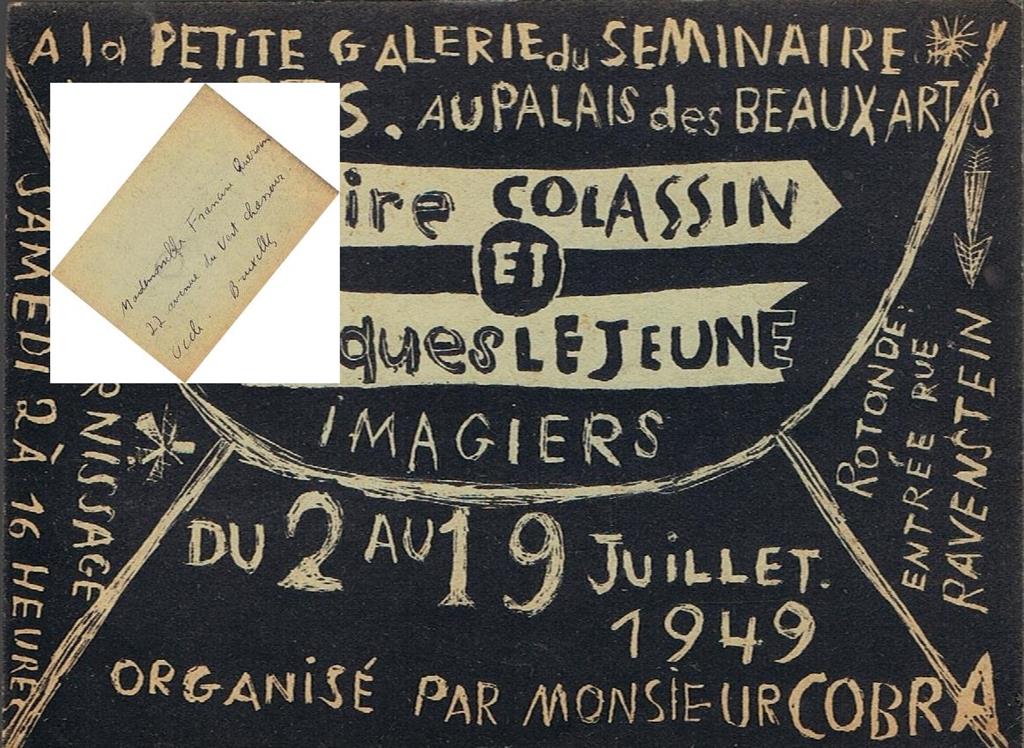 A la PETITE GALERIE du SEMINAIRE
S. AU PALAIS des BEAUX-ARTS
ire COLASSIN
ET
ques LEJEUNE
IMAGIERS
DU 2 AU 19 JUILLET.
1949
ORGANISÉ PAR MONSIEUR COBRA
SAMEDI 2 À 16 HEURES
RNISSAGE
ROTONDE:
ENTRÉE RUE
RAVENSTEIN
Mademoiselle Francine
22 avenue du Vert Chasseur.
Uccle. Bruxelles